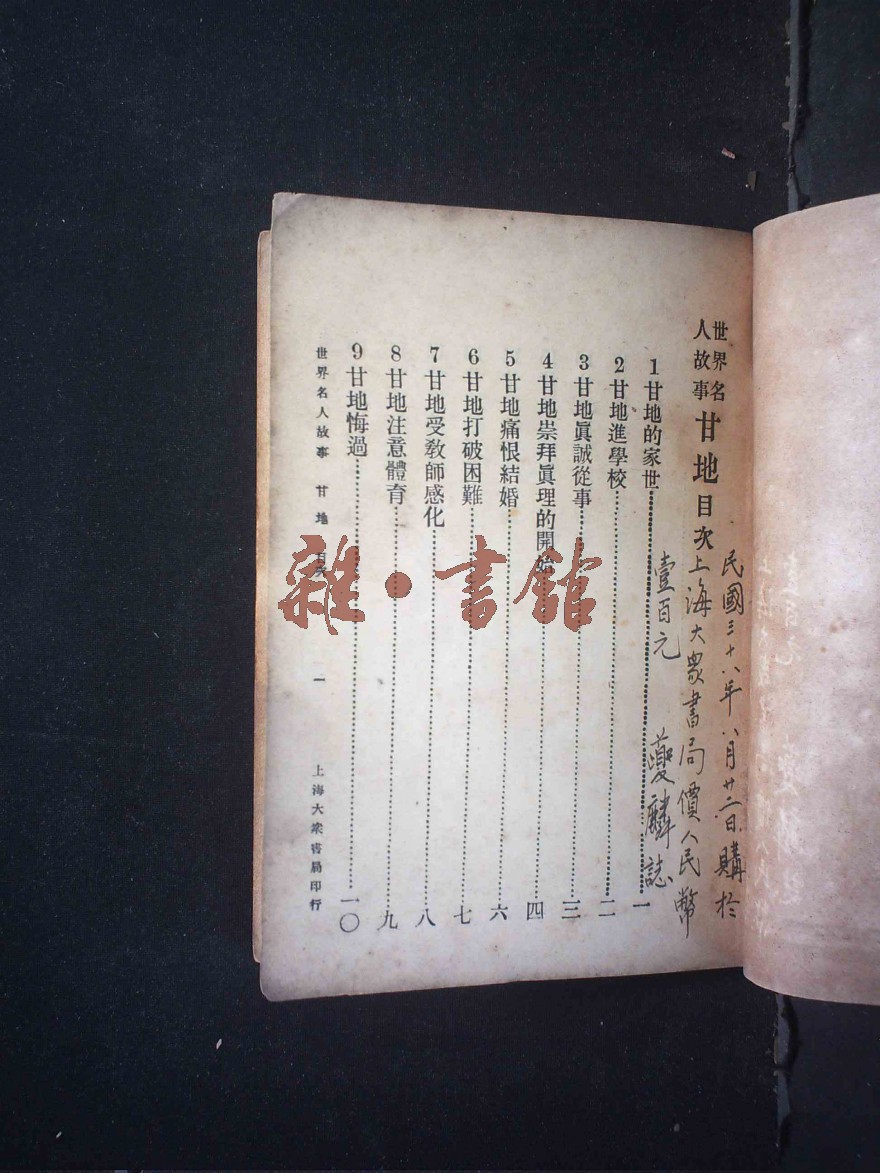 世界名人故事 甘地目次
1 甘地的家世 一
2 甘地進學校 二
3 甘地眞誠從事 三
4 甘地崇拜眞理的開始 四
5 甘地痛恨結婚 六
6 甘地打破困難 七
7 甘地受敎師感化 八
8 甘地注意體育 九
9 甘地悔過 一〇
世界名人故事 甘地 目次 一 上海大衆書局印行
民國三十八年八月廿二日購於
上海大衆書局價人民幣
壹百元 夔麟誌
雜·書館